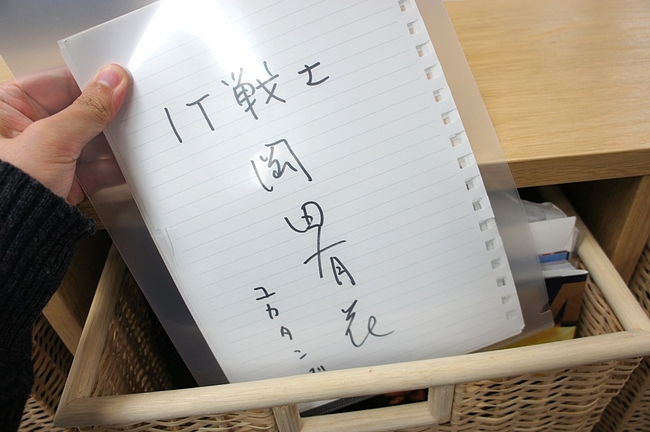 IT戦士
岡田有花
ユカタン